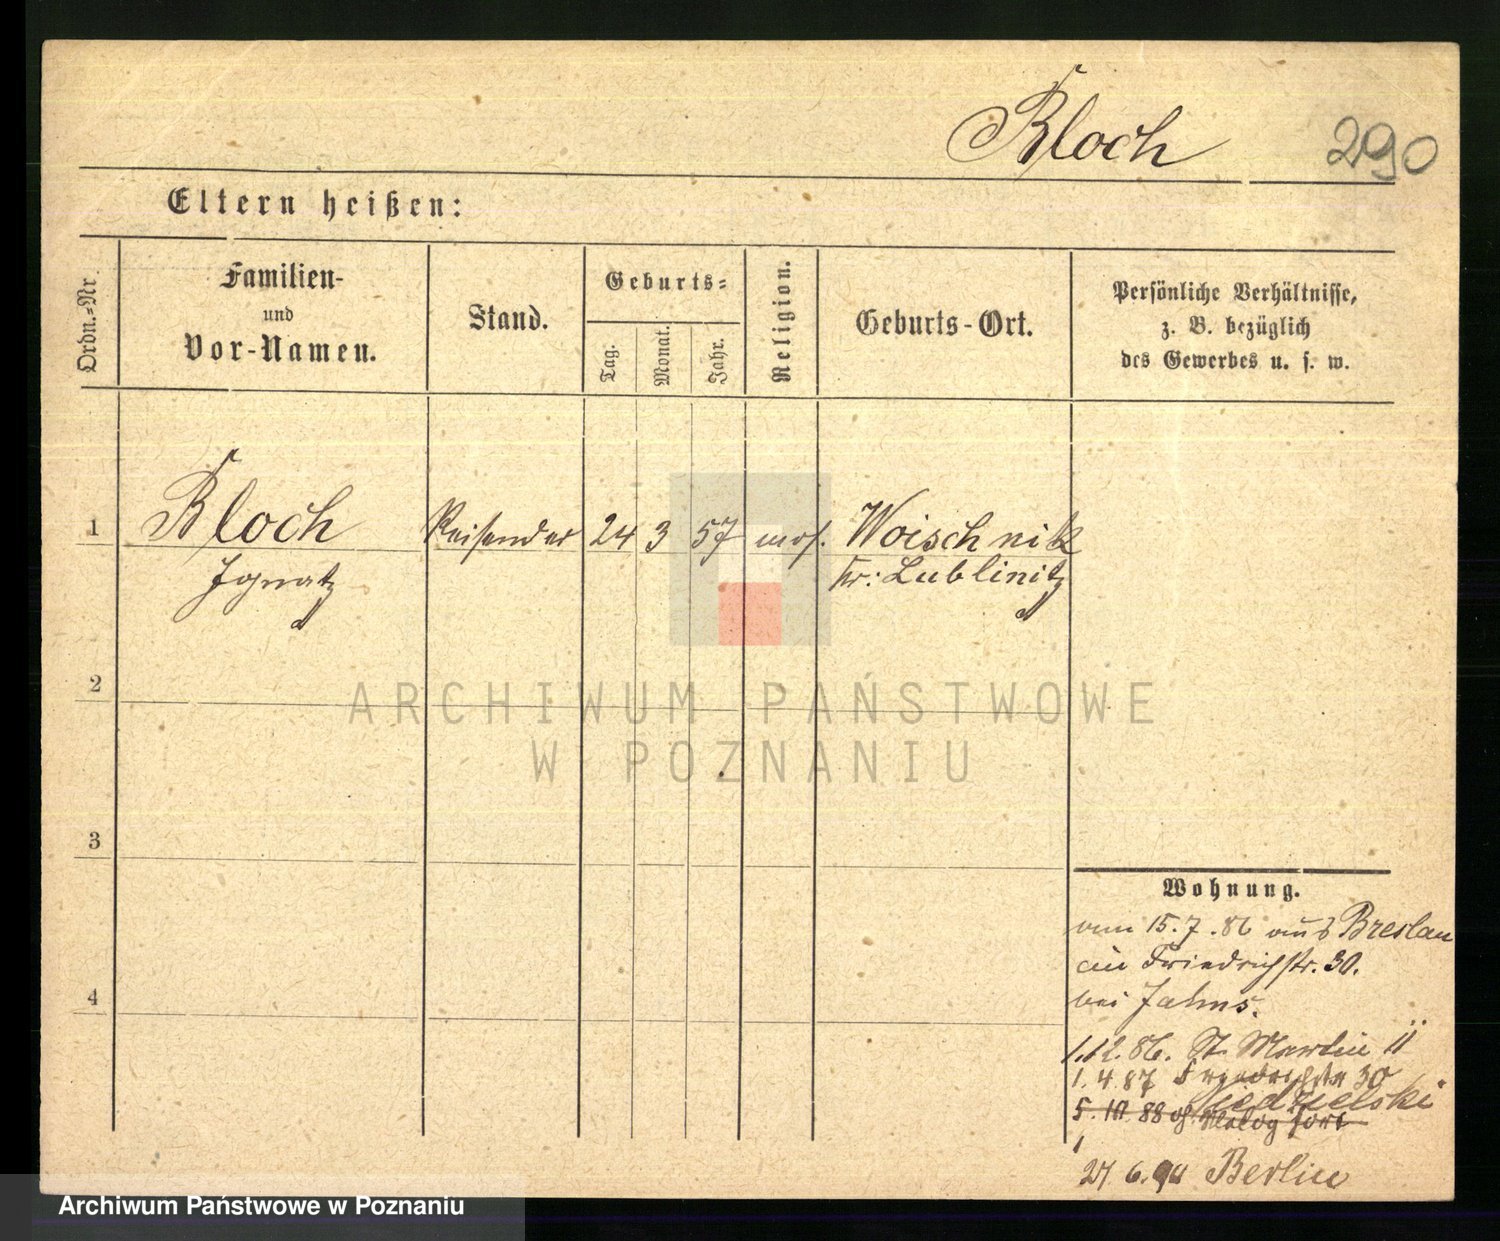 Bloch 290
Eltern heißen:
Ordn.-Nr.
Familien-
und
Vor-Namen.
Stand.
Geburts-
Tag.
Monat.
Jahr.
Religion.
Geburts-Ort.
Persönliche Verhältnisse,
z. B. bezüglich
des Gewerbes u. s. w.
1 Bloch Reisender 24 3 57 mos. Woischnik
Ignatz Kr: Lublinitz
2
ARCHIWUM PAŃSTWOWE
W POZNANIU
3
4
Wohnung.
vom 15.7.86 aus Breslau
Friedrichstr. 30.
bei Jahns.
1.12.86. St. Martin 11
1.4.87 Friedrichstr 30
5.10.88 fort
24 6. Berlin
Archiwum Państwowe w Poznaniu